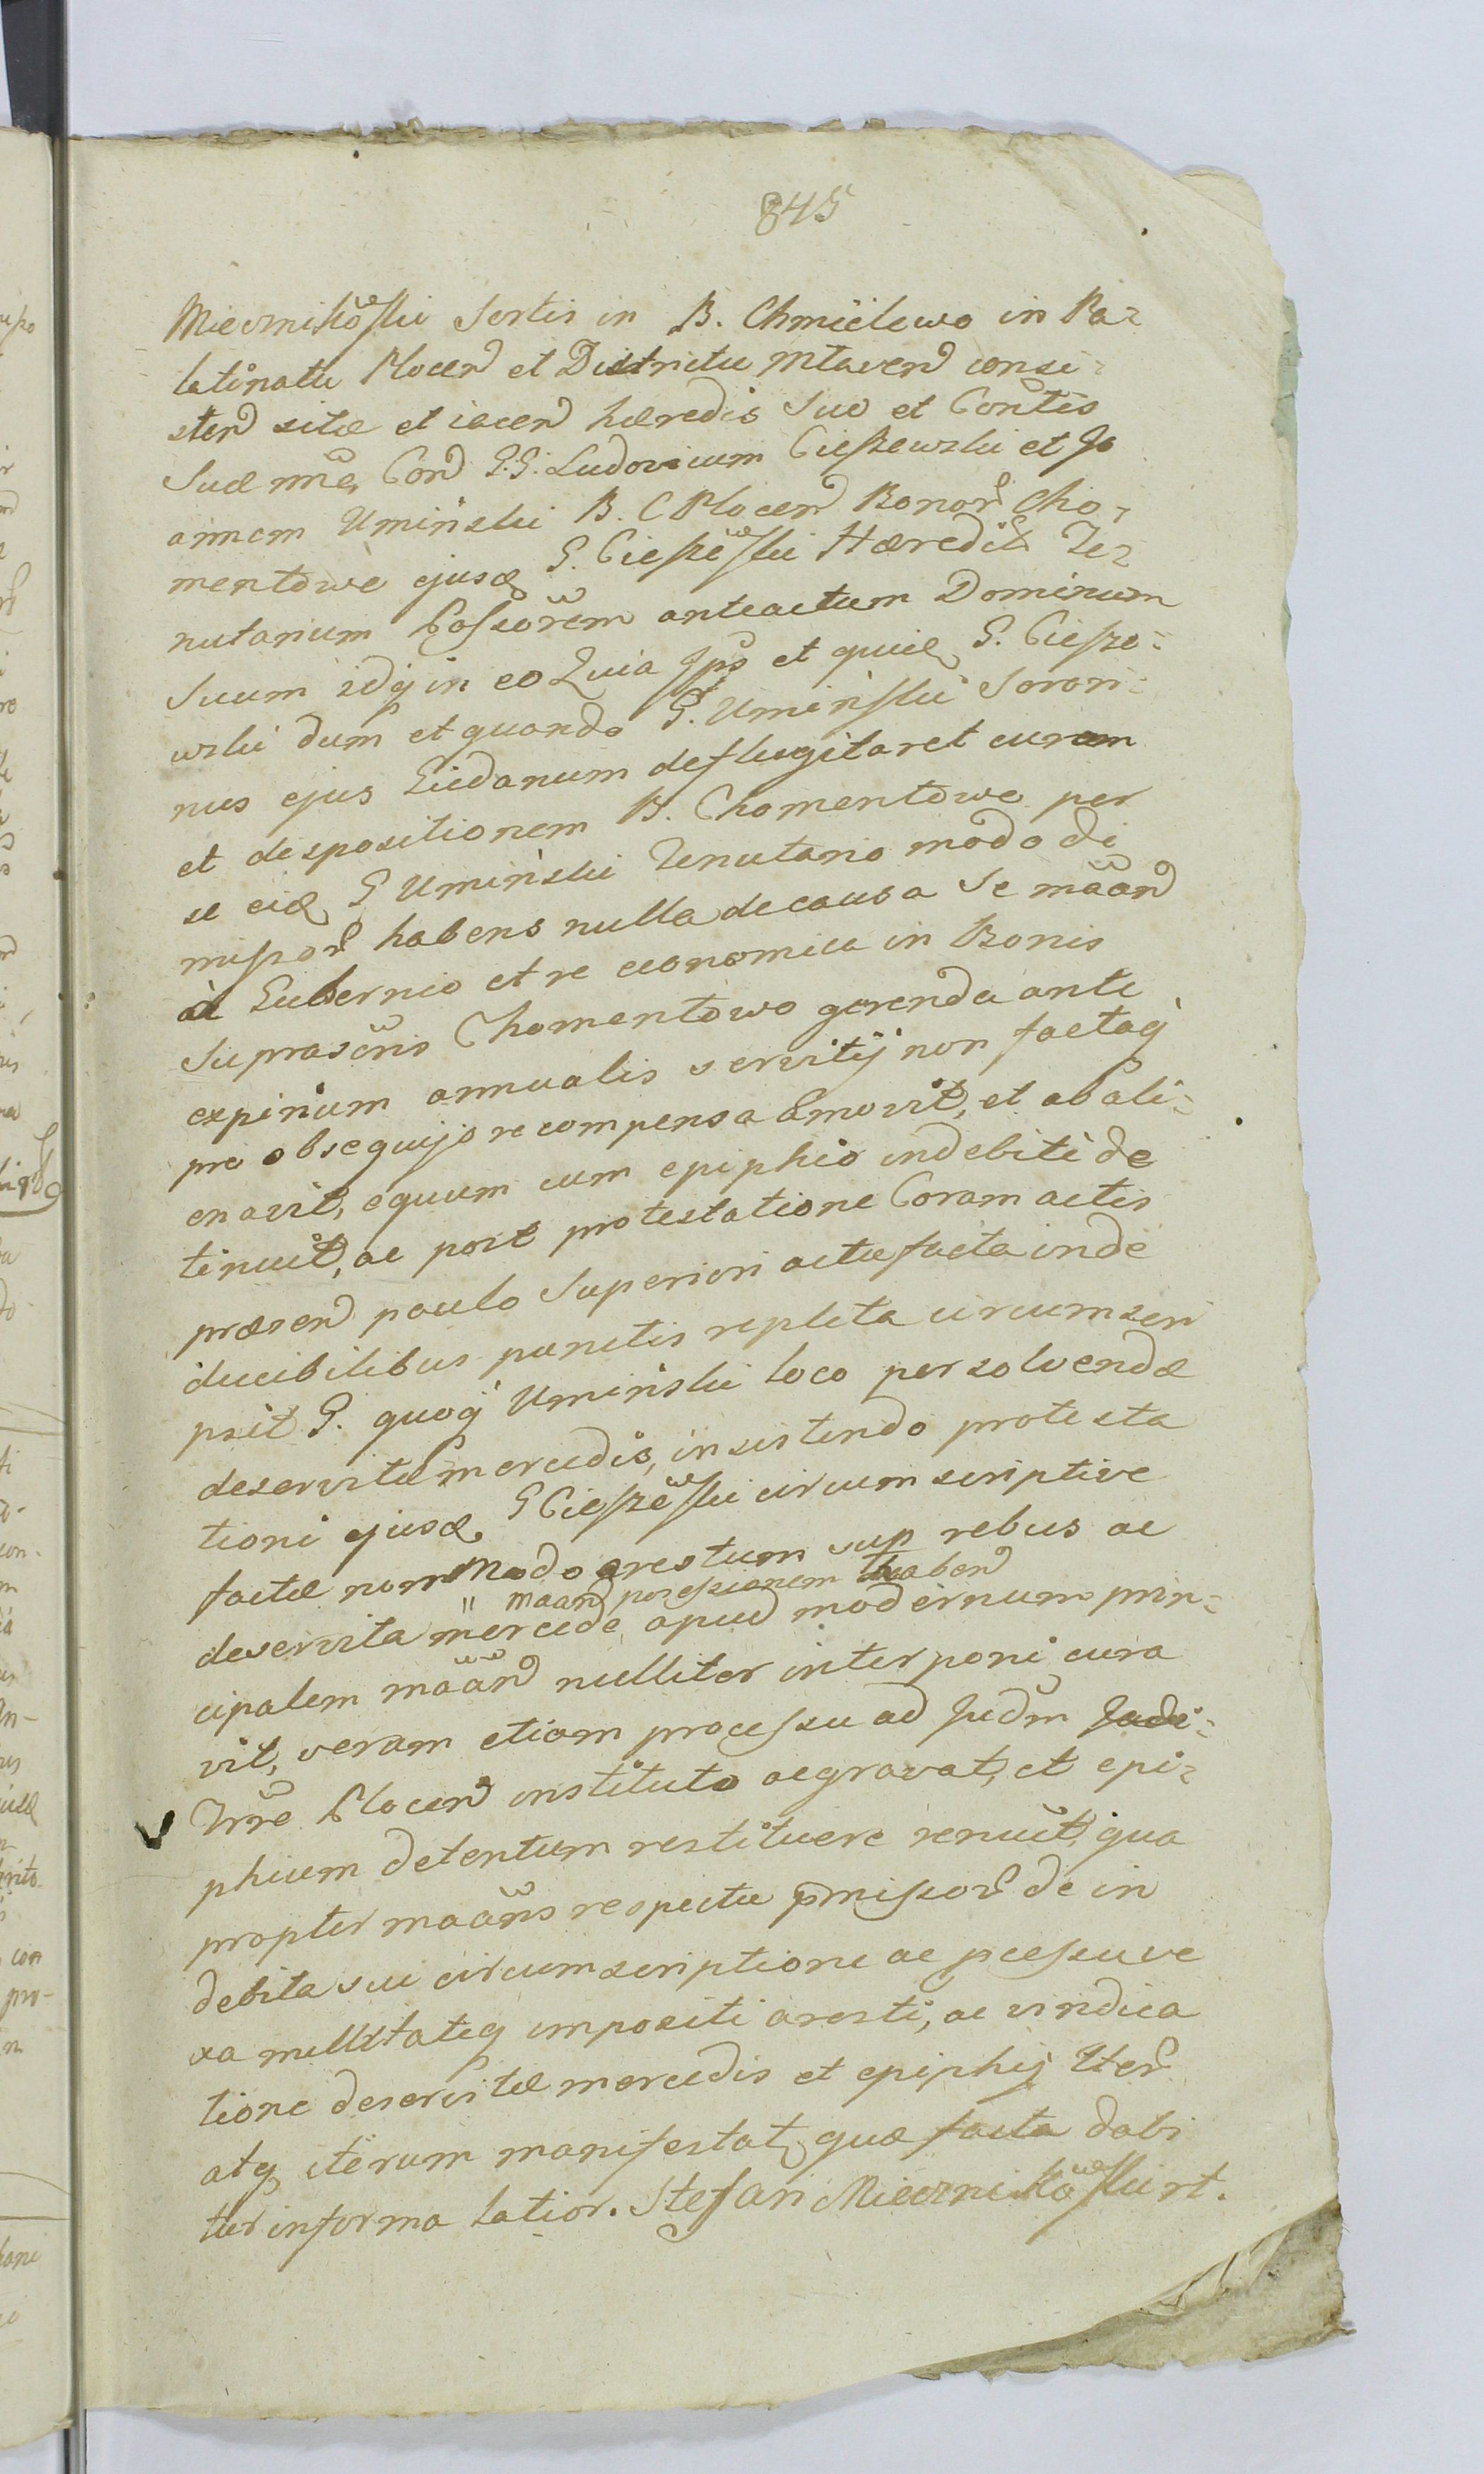 845
Miecznikow̃ski Sortis in B. Chmielewo in Pa-
latinatu Plocen̄ et Districtu Mlaven̄ consi-
sten̄ sitæ et iacen̄ hæredis Suo et Contis
Suæ nn͠e Con̄ G.G. Ludovicum Cieszewski et Jo
annem Uminski B. C Plocen̄ Bonor̄ Cho-
mentowo ejusđ G. Cieszew̃ski Hæredit̄ Te-
nutarium Possõrem anteactum Dominum
Suum idq in eo Quia Ips̃o et quiđ G. Ciesze-
wski dum et quando G. Uminski Sorori-
nus ejus Giedanum deflugitaret curam
et dispositionem B. Chomentowo per
se eiđ G Uminski Tenutario modo di
missor̄ habens nulla de causa Se mãan̄
a Gubernio et re economica in Bonis
Suprascr̃is Chomentowo gerenda ante
expirium annualis servitij non factaq
pro obsequijs recompensa amovit, et abali-
enavit, equum cum epiphio indebite de
tinuit, ac post protestatione Coram actis
præsen̄ paulo Superiori actu facta inde
ducibilibus punctis repleta circumscri
psit G. quoq Uminski loco persolvendæ
deservitæ mercedis, insistendo protesta
tioni ejusđ G Cieszew̃ski circumscriptive
factæ non modo arestum sup rebus ac
" maan̄ possessionem haben̄
deservita mercede apud modernum prin-
cipalem mãan̄ nulliter interponi cura
vit, veram etiam processu ad Judm̃ Judi-
Trr̃e Plocen̄ instituto aegravat, et epi-
phium detentum restituere renuit, qua
propter maãns respectu p̄missor̄ de in
debita sui circumscriptione ac p̄cessu ve
xa nullitateq impositi aresti, ac vindica
tione deservitæ mercedis et epiphij Iter̄
atq iterum manifestat, quæ facta dabi
tur in forma latior. Stefan Miecznikow̃ski rt.